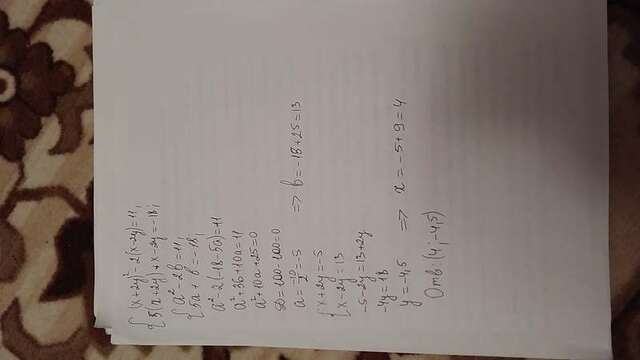 (x+2y)² - 2(x-2y) = 11,
5(x+2y) + x-2y = -18;
a² - 2b = 11,
5a + b = -18;
a² - 2(-18-5a) = 11
a² + 36 + 10a = 11
a² + 10a + 25 = 0
D = 100 - 100 = 0
a = -10/2 = -5 => b = -18 + 25 = 13
x + 2y = -5
x - 2y = 13
-5 - 2y = 13 + 2y
-4y = 18
y = -4,5 => x = -5 + 9 = 4
Отв: (4; -4,5)